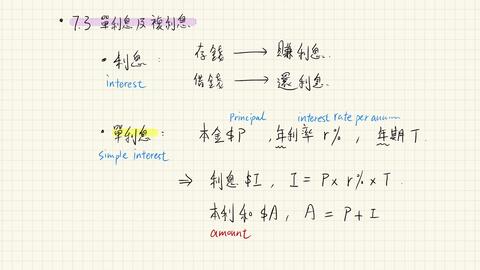 • 7.3 單利息及複利息
• 利息 : 存錢 → 賺利息.
interest 借錢 → 還利息.
Principal interest rate per annum
• 單利息 : 本金$P , 年利率 r% , 年期 T.
simple interest
⇒ 利息 $I , I = P × r% × T.
本利和 $A , A = P + I
amount